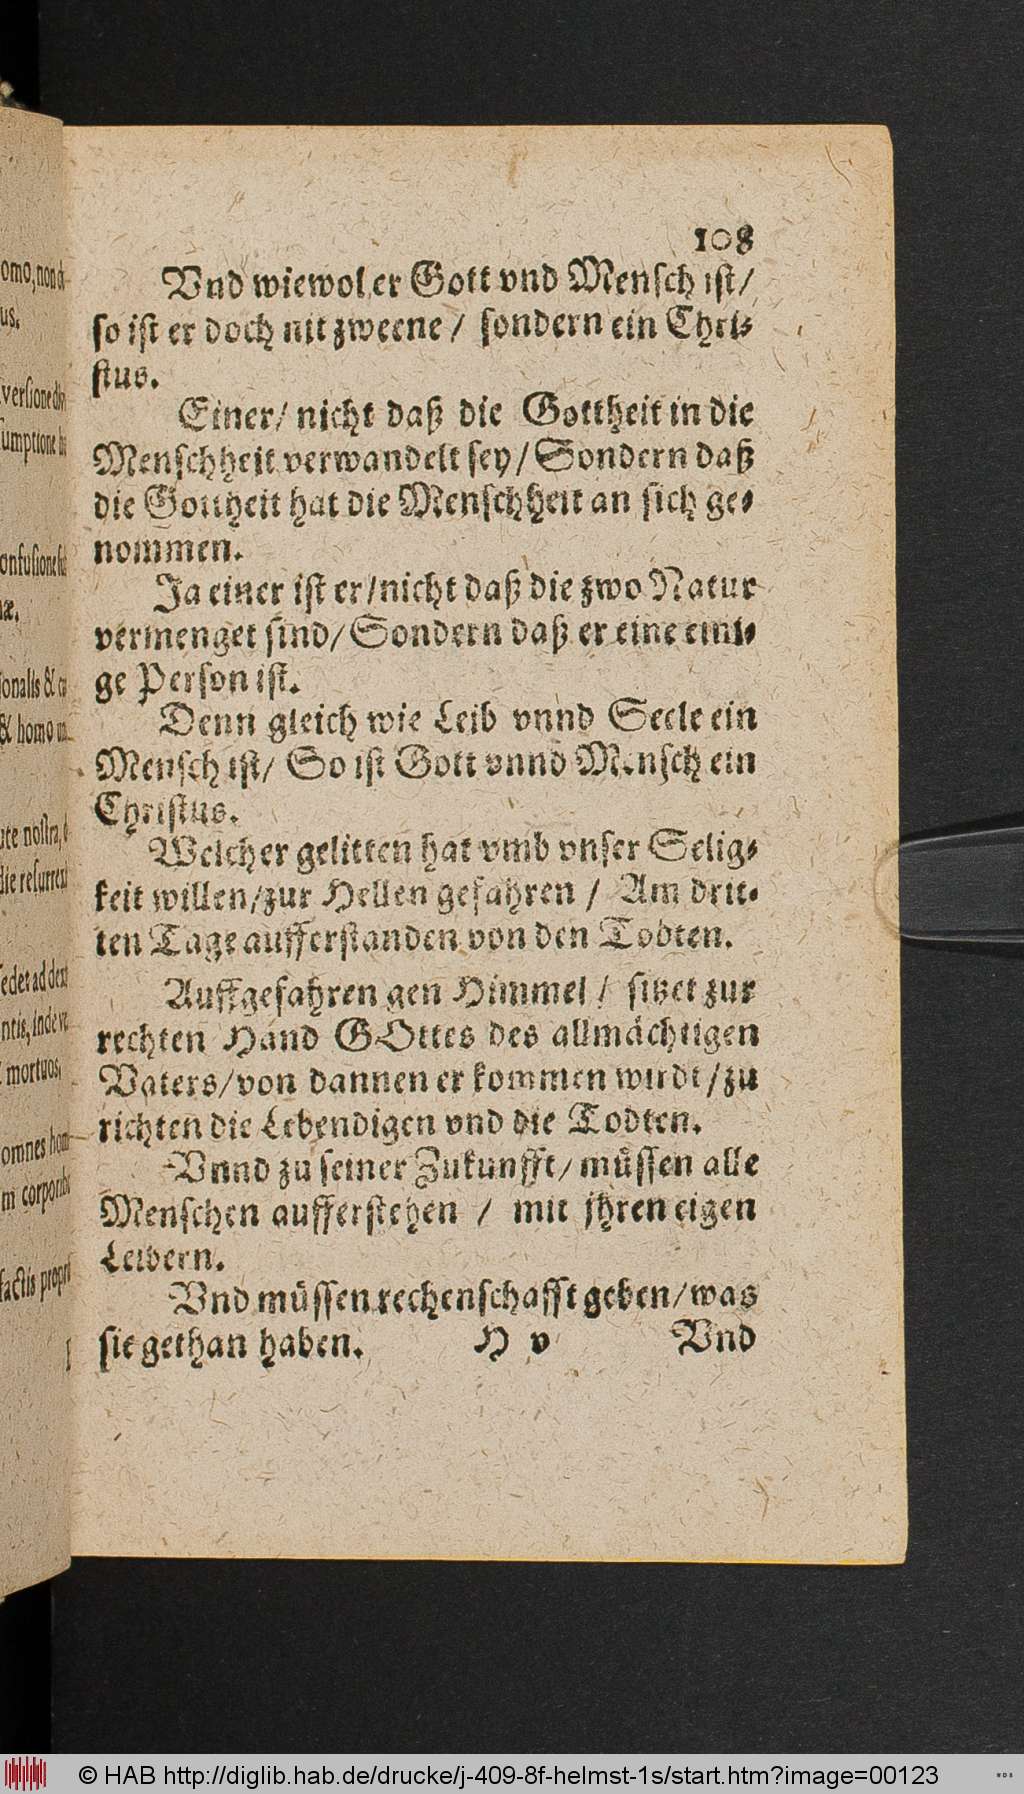 108
Vnd wiewol er Gott vnd Mensch ist/
so ist er doch nit zweene / sondern ein Chri-
stus.
Einer/ nicht daß die Gottheit in die
Menschheit verwandelt sey/ Sondern daß
die Gottheit hat die Menschheit an sich ge-
nommen.
Ja einer ist er/ nicht daß die zwo Natur
vermenget sind/ Sondern daß er eine eini-
ge Person ist.
Denn gleich wie Leib vnnd Seele ein
Mensch ist/ So ist Gott vnnd Mensch ein
Christus.
Welcher gelitten hat vmb vnser Selig-
keit willen/ zur Hellen gefahren / Am drit-
ten Tage aufferstanden von den Todten.
Auffgefahren gen Himmel / sitzet zur
rechten Hand GOttes des allmächtigen
Vaters/ von dannen er kommen wirdt / zu
richten die Lebendigen vnd die Todten.
Vnnd zu seiner Zukunfft/ müssen alle
Menschen aufferstehen / mit jhren eigen
Leibern.
Vnd müssen rechenschafft geben/ was
sie gethan haben. H v Vnd
omo, non
us.
versione
umptione
onfusione
næ.
sonalis &
& homo
ute nostra,
die
sedet ad
ntis, inde
mortuos.
omnes
m
factis
© HAB http://diglib.hab.de/drucke/j-409-8f-helmst-1s/start.htm?image=00123